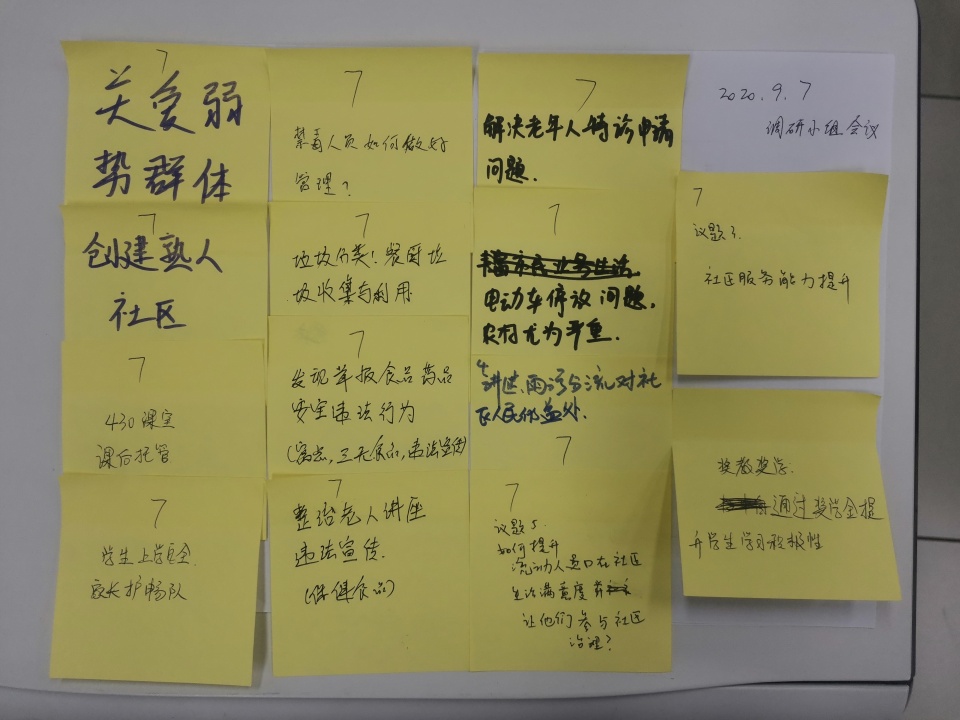 7
关爱弱
势群体
7
创建熟人
社区
7
430课堂
课后托管
7
学生上学安全
家长护畅队
7
禁毒人员如何做好
管理？
7
垃圾分类！餐厨垃
圾收集与利用
7
发现举报食品药品
安全违法行为
(窝点,三无食品,违法宣传)
7
整治老人讲座
违法宣传.
(保健食品)
7
解决老年人特诊申请
问题.
7
电动车停放问题.
农村尤为严重.
4
讲述雨污分流对社
区人民的益处.
7
7
议题5.
如何提升
流动人员口在社区
生活满意度
让他们参与社区
治理？
2020.9.7
调研小组会议
7
议题3.
社区服务能力提升
奖教奖学:
通过奖学金提
升学生学习积极性